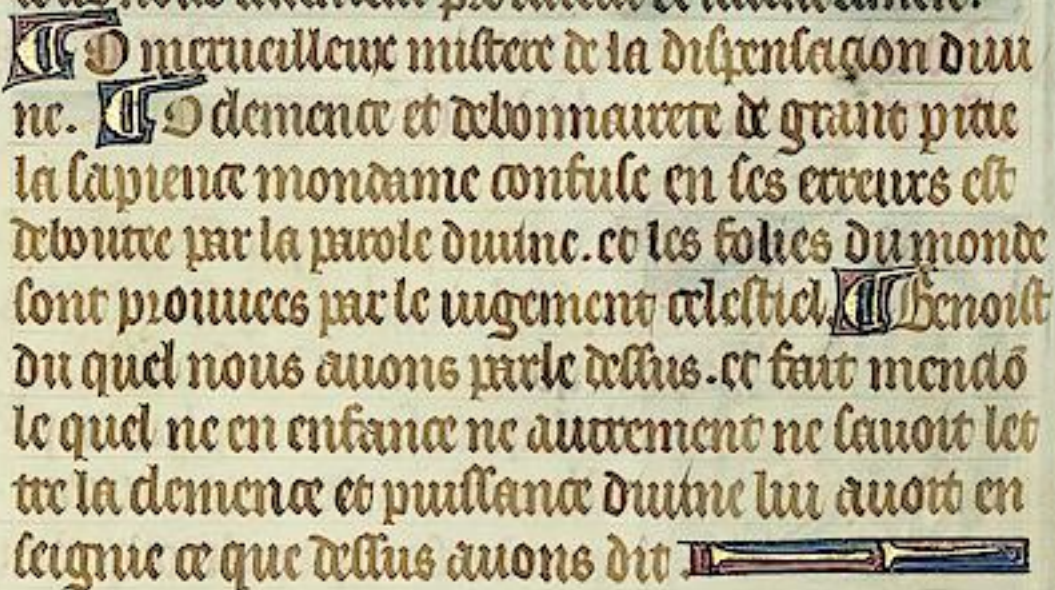 O merueilleux mistere de la dispensacion diui
ne. O clemence et debonnairete de grant pitie
la sapience mondaine confuse en ses erreurs est
deboutee par la parole diuine. et les folies du monde
sont prouuees par le iugement celestiel. Benoist
du quel nous auons parle dessus. et fait mencio̅
le quel ne en enfance ne autrement ne sauoit let
tre la clemence et puissance diuine lui auoit en
seignie ce que dessus auons dit